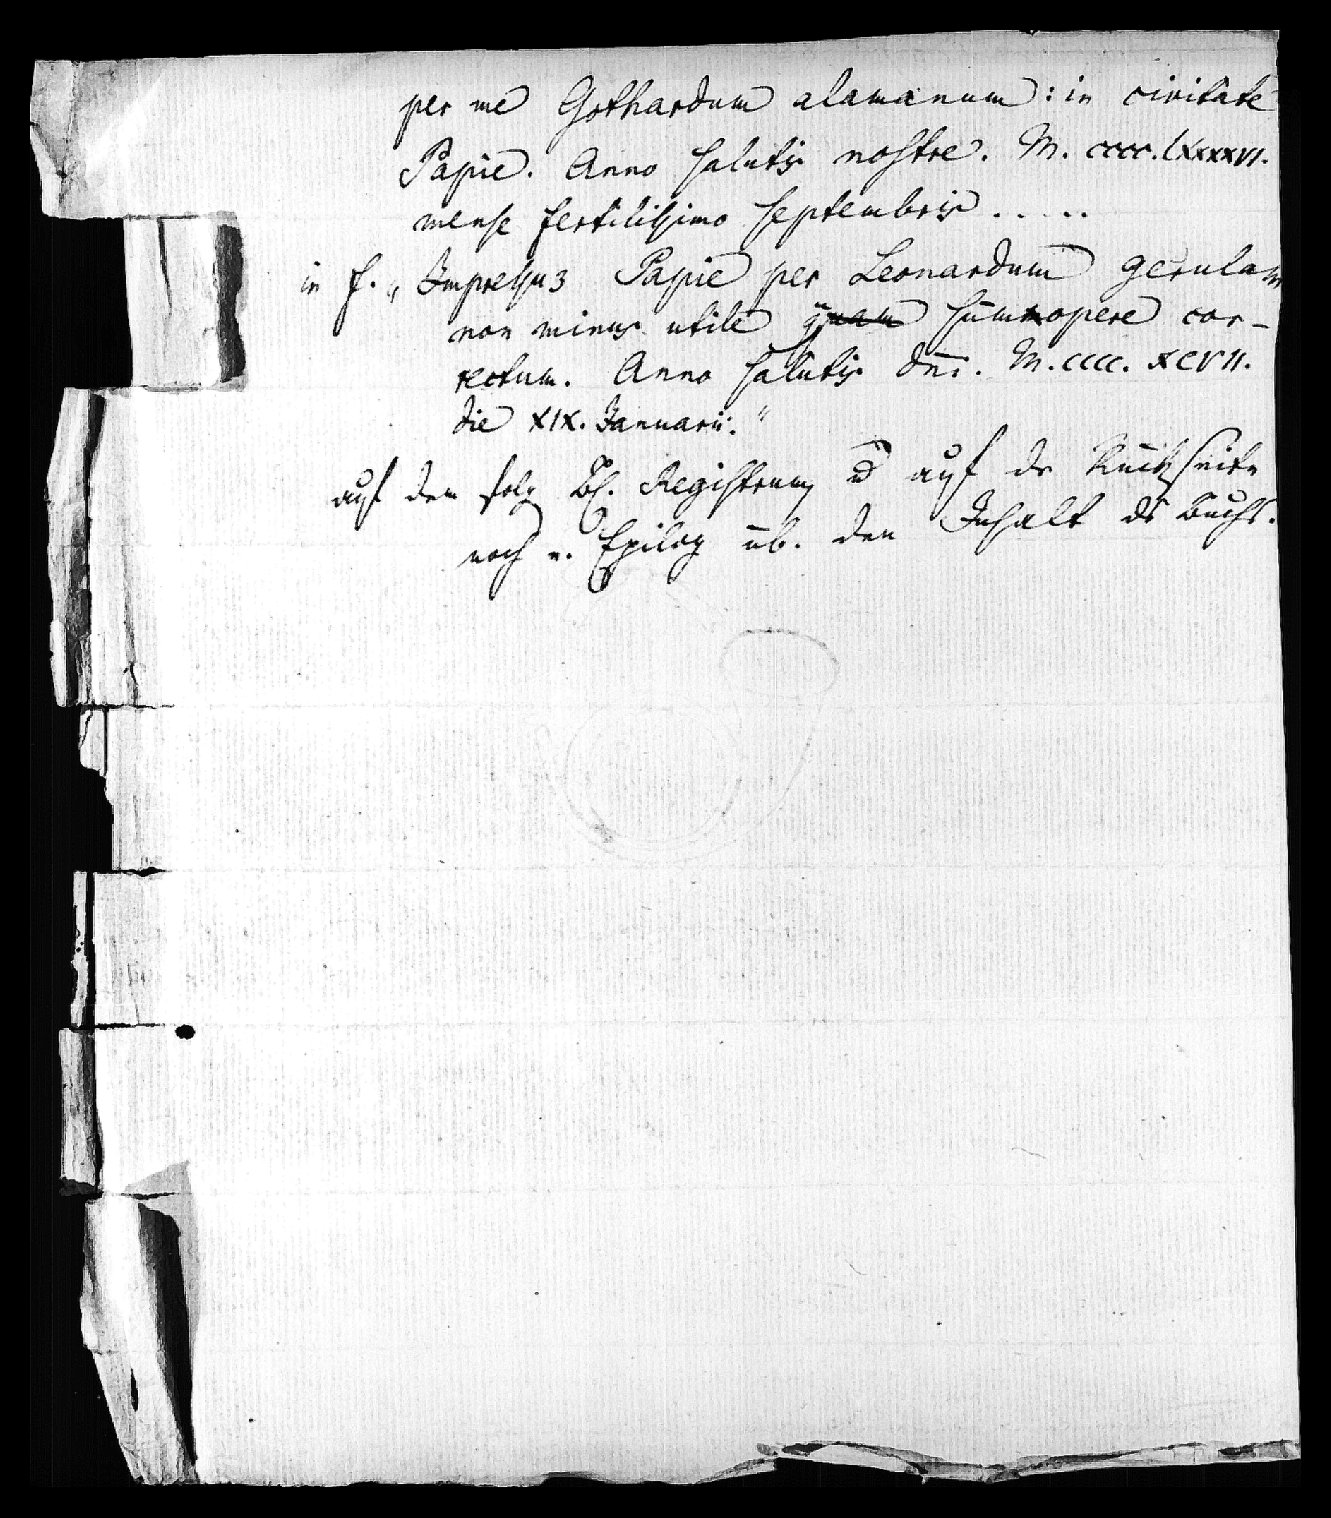 per me Gothardum alamanum: in civitate
Papie. Anno salutis nostre. M. cccc. lxxxxvi.
mense fertilissimo septembris .....
in f. „Impressuz Papie per Leonardum gerulam
non minus utile quam summopere cor-
rectum. Anno salutis dni. M. cccc. xcvii.
die XIX. Januarii."
auf dem folg Bl. Registrum u auf dr Rückseite
noch e. Epilog üb. den Inhalt ds Buchs.